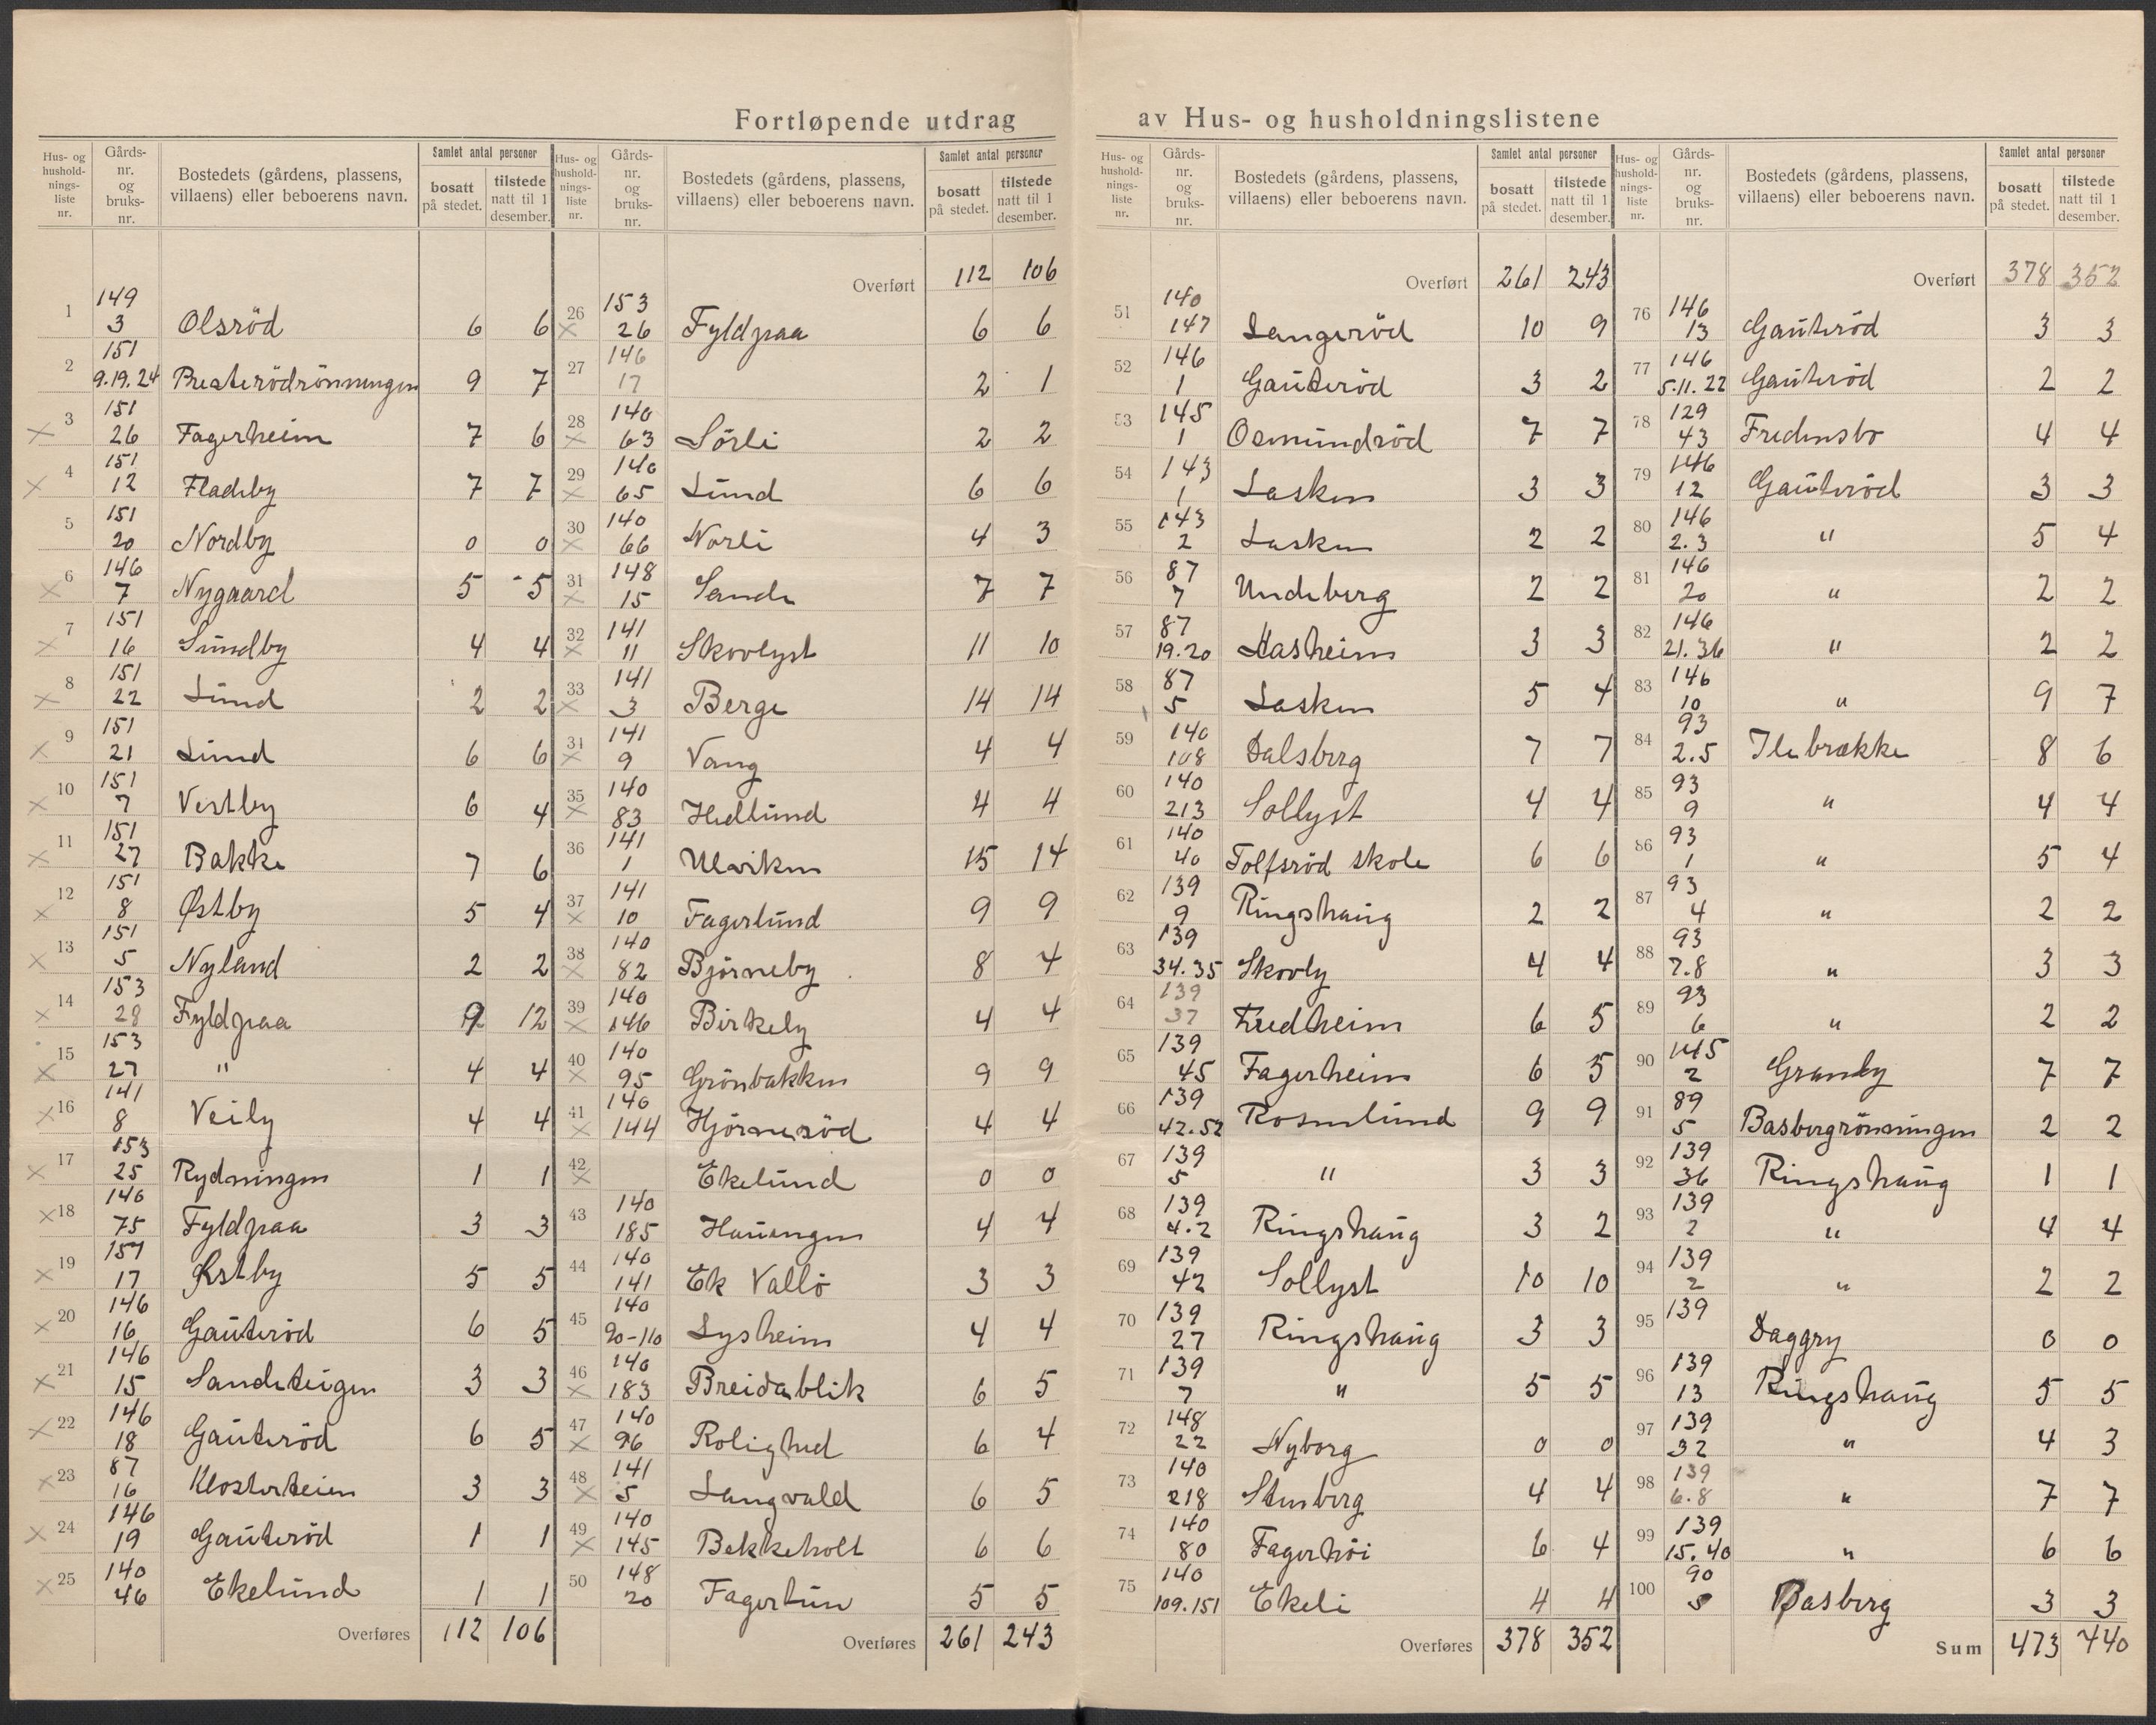 Fortløpende utdrag av Hus- og husholdningslistene
Hus- og hushold-nings-liste nr. | Gårds-nr. og bruks-nr. | Bostedets (gårdens, plassens, villaens) eller beboerens navn. | Samlet antal personer: bosatt på stedet. | tilstede natt til 1 desember.
1 149 3 Olsröd 6 6
2 151 9.19.24 Presterödrönningen 9 7
× 3 151 26 Fagerheim 7 6
× 4 151 12 Fladeby 7 7
5 151 20 Nordby 0 0
× 6 146 7 Nygaard 5 5
× 7 151 16 Sundby 4 4
× 8 151 22 Lund 2 2
× 9 151 21 Lund 6 6
× 10 151 7 Vestby 6 4
× 11 151 27 Bakke 7 6
× 12 151 8 Østby 5 4
× 13 151 5 Nyland 2 2
× 14 153 28 Fyldpaa 12
× 15 153 27 " 4 4
× 16 141 8 Veily 4 4
× 17 153 25 Rydningen 1 1
× 18 140 75 Fyldpaa 3 3
× 19 151 17 Østby 5 5
× 20 146 16 Gauteröd 6 5
× 21 146 15 Sandeteigen 3 3
× 22 146 18 Gauteröd 6 5
× 23 87 16 Klosterteien 3 3
× 24 146 19 Gauteröd 1 1
× 25 140 46 Ekelund 1 1
Overføres 112 106
Hus- og hushold-nings-liste nr. | Gårds-nr. og bruks-nr. | Bostedets (gårdens, plassens, villaens) eller beboerens navn. | Samlet antal personer: bosatt på stedet. | tilstede natt til 1 desember.
Overført 112 106
26 × 153 26 Fyldpaa 6 6
27 146 17 2 1
28 × 140 63 Sörli 2 2
29 × 140 65 Lund 6 6
30 × 140 66 Norli 4 3
31 × 148 15 Sande 7 7
32 × 141 11 Skovlyst 11 10
33 × 141 3 Berge 14 14
34 × 141 9 Vang 4 4
35 × 140 83 Hedlund 4 4
36 141 1 Ulviken 15 14
37 × 141 10 Fagerlund 9 9
38 × 140 82 Björneby 8 4
39 × 140 146 Birkely 4 4
40 × 140 95 Grönbakken 9 9
41 × 140 144 Hjörneröd 4 4
42 × Ekelund 0 0
43 140 185 Hauengen 4 4
44 140 141 Ek Vallö 3 3
45 140 90-110 Lysheim 4 4
46 × 140 183 Breidablik 6 5
47 × 140 96 Rolighed 6 4
48 × 141 5 Langvald 6 5
49 × 140 145 Bekkeholt 6 6
50 148 20 Fagertun 5 5
Overføres 261 243
Hus- og hushold-nings-liste nr. | Gårds-nr. og bruks-nr. | Bostedets (gårdens, plassens, villaens) eller beboerens navn. | Samlet antal personer: bosatt på stedet. | tilstede natt til 1 desember.
Overført 261 243
51 140 147 Langeröd 10 9
52 146 1 Gauteröd 3 2
53 145 1 Osmundröd 7 7
54 143 1 Lasken 3 3
55 143 2 Lasken 2 2
56 87 7 Undeberg 2 2
57 87 19.20 Aasheim 3 3
58 87 5 Lasken 5 4
59 140 108 Dalsberg 7 7
60 140 213 Sollyst 4 4
61 140 40 Tolfsröd skole 6 6
62 139 9 Ringshaug 2 2
63 139 34.35 Skovly 4 4
64 139 37 Fredheim 6 5
65 139 45 Fagerheim 6 5
66 139 42.52 Rosenlund 9 9
67 139 5 " 3 3
68 139 4.2 Ringshaug 3 2
69 139 42 Sollyst 10 10
70 139 27 Ringshaug 3 3
71 139 7 " 5 5
72 148 22 Nyborg 0 0
73 140 218 Stenberg 4 4
74 140 80 Fagerhöi 6 4
75 140 109.151 Ekeli 4 4
Overføres 378 352
Hus- og hushold-nings-liste nr. | Gårds-nr. og bruks-nr. | Bostedets (gårdens, plassens, villaens) eller beboerens navn. | Samlet antal personer: bosatt på stedet. | tilstede natt til 1 desember.
Overført 378 352
76 146 13 Gauteröd 3 3
77 146 5.11.22 Gauteröd 2 2
78 129 43 Fredensbo 4 4
79 146 12 Gauteröd 3 3
80 146 2.3 " 5 4
81 146 20 " 2 2
82 146 21.36 " 2 2
83 146 10 " 9 7
84 93 2.5 Ilebrække 8 6
85 93 9 " 4 4
86 93 1 " 5 4
87 93 4 " 2 2
88 93 7.8 " 3 3
89 93 6 " 2 2
90 145 2 Granby 7 7
91 89 5 Basbergrönningen 2 2
92 139 36 Ringshaug 1 1
93 139 2 " 4 4
94 139 2 " 2 2
95 139 Daggry 0 0
96 139 13 Ringshaug 5 5
97 139 32 " 4 3
98 139 6.8 " 7 7
99 139 15.40 " 6 6
100 90 5 Basberg 3 3
Sum 473 440